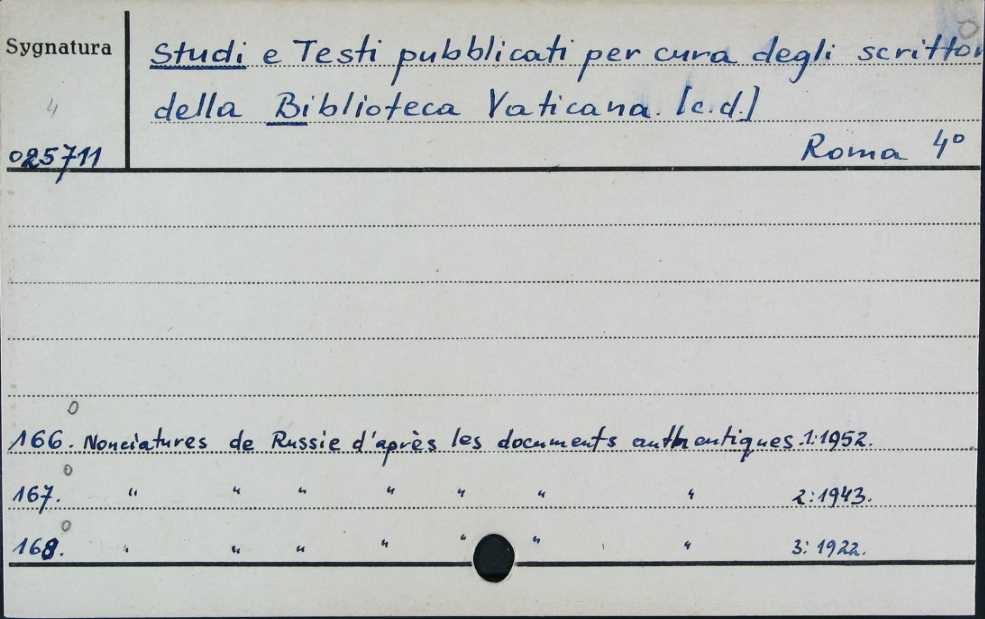 Sygnatura
Studi e Testi pubblicati per cura degli scrittor
4
della Biblioteca Vaticana. [c.d.]
025711
Roma 4º
0
166. Nonciatures de Russie d'après les documents authentiques. 1:1952.
0
167. " " " " " " " 2:1943.
0
168. " " " " " " " 3:1922.